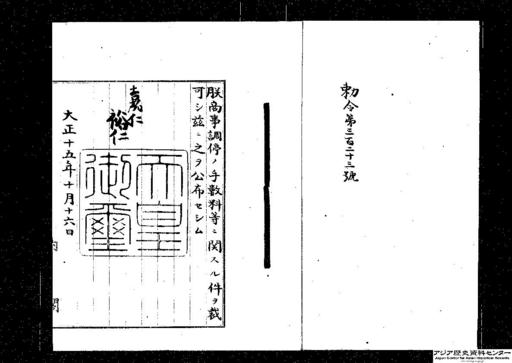 勅令第三百二十三號
朕商事調停ノ手數料等ニ関スル件ヲ裁
可シ茲ニ之ヲ公布セシム
嘉仁
裕仁
天皇
御璽
大正十五年十月十六日
内
閣
アジア歴史資料センター
Japan Center for Asian Historical Records